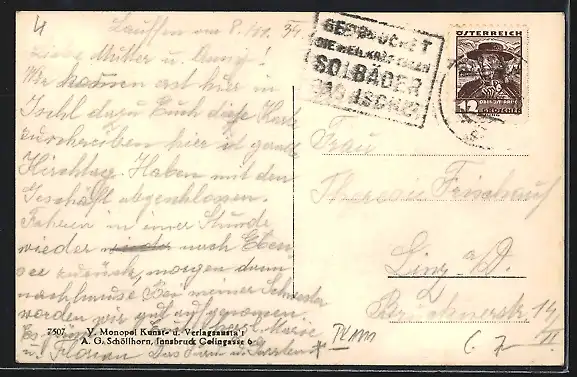 4
Lauffen am 8./VII. 34
Liebe Mutter u. 
Wir kommen erst hier in
Ischl dazu Euch diese Karte
zu schreiben hier ist gerade
Kirchtag. Haben mit den
Geschäft abgeschlossen.
Fahren in einer Stunde
wieder nach Eben-
see zurück, morgen dann
nachhause Bei meiner Schwester
worden wir gut aufgenommen.
Marie
u. Florian
GEBRAUCHET
DIE HEILKRÄFTIGEN
SOLBÄDER
BAD ISCHL
ÖSTERREICH
12 GROSCHEN
Frau
Theresia Frischauf
Linz a. D.
Brucknerstr. 14
II
7507 V. Monopol Kunst- u. Verlagsanstalt
A. G. Schöllhorn, Innsbruck Gelingasse 6